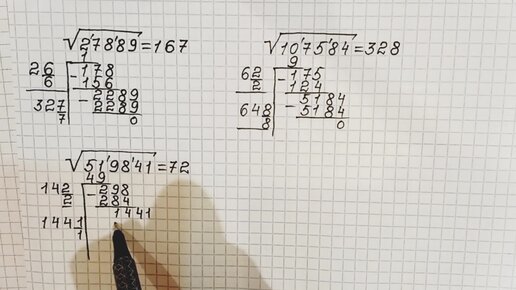 √2'78'89 = 167
1
26 - 178
6 156
327 - 2289
7 2289
0
√10'75'84 = 328
9
62 - 175
2 124
648 - 5184
8 5184
0
√51'98'41 = 72
49
142 - 298
2 284
1441 1441
1